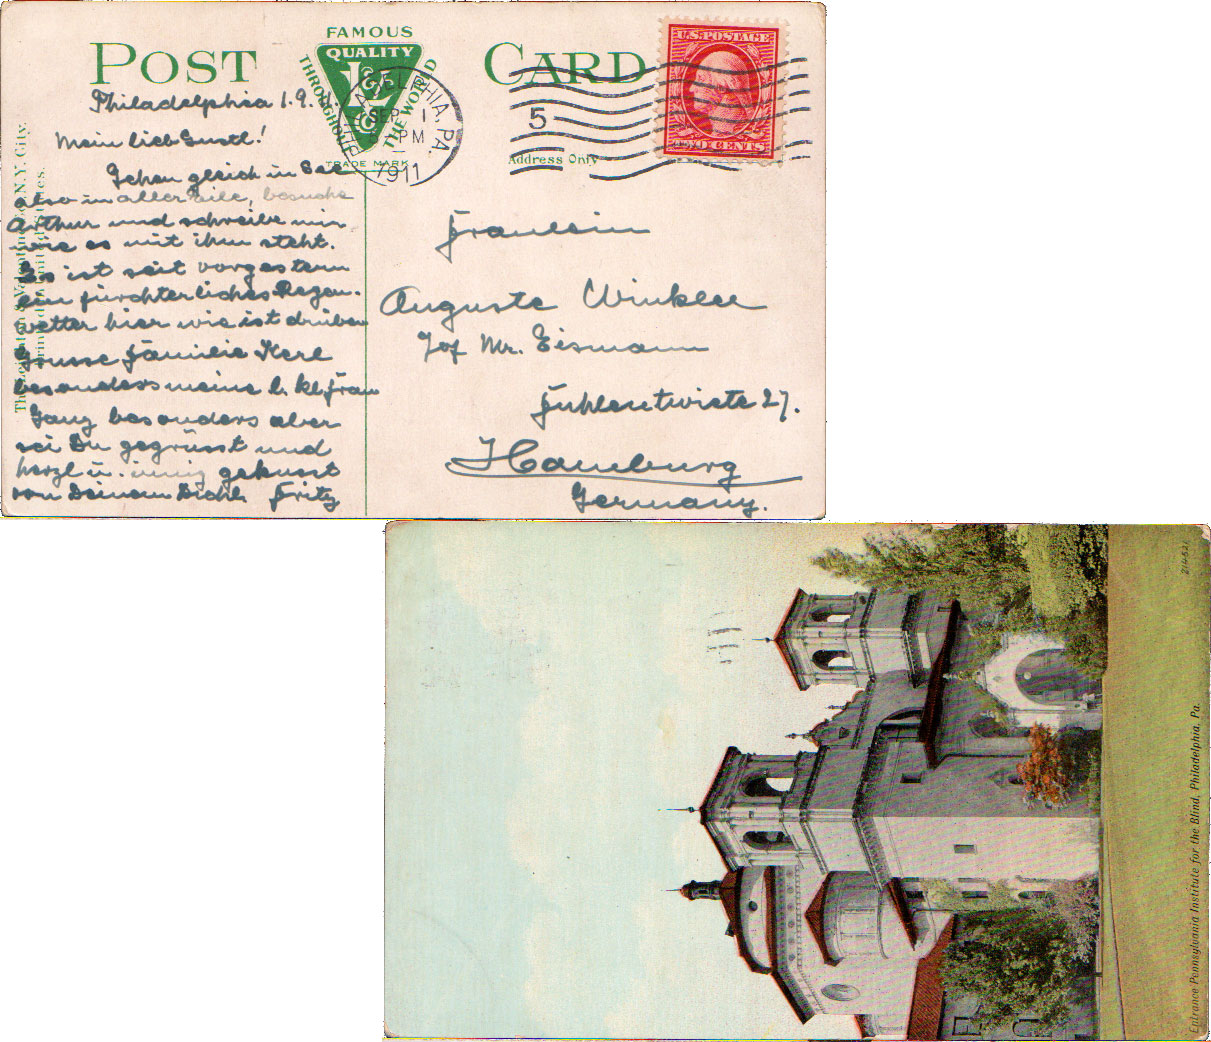 POST CARD
FAMOUS
QUALITY
THROUGHOUT THE WORLD
TRADE MARK
PHILADELPHIA, PA.
SEP 1
PM
1911
5
Address Only
U.S. POSTAGE
TWO CENTS
N.Y. City.
Philadelphia 1.9.11.
Mein lieb Gustl!
Gehen gleich in See
also in aller Eile, besuche
Arthur und schreibe mir
wie es mit ihm steht.
Es ist seit vorgestern
ein fürchterliches Regen-
wetter hier wie ist drüben
Grüsse Familie Karl
besonders meine l. kl. Fran
Ganz besonders aber
sei Du gegrüsst und
herzl u. innig geküsst
von Deinem Dichl. Fritz
Fraulein
Auguste Winkler
Mr. Eismann
Fuhlentwiete 27.
Hamburg
Germany.
Entrance Pennsylvania Institute for the Blind, Philadelphia, Pa.